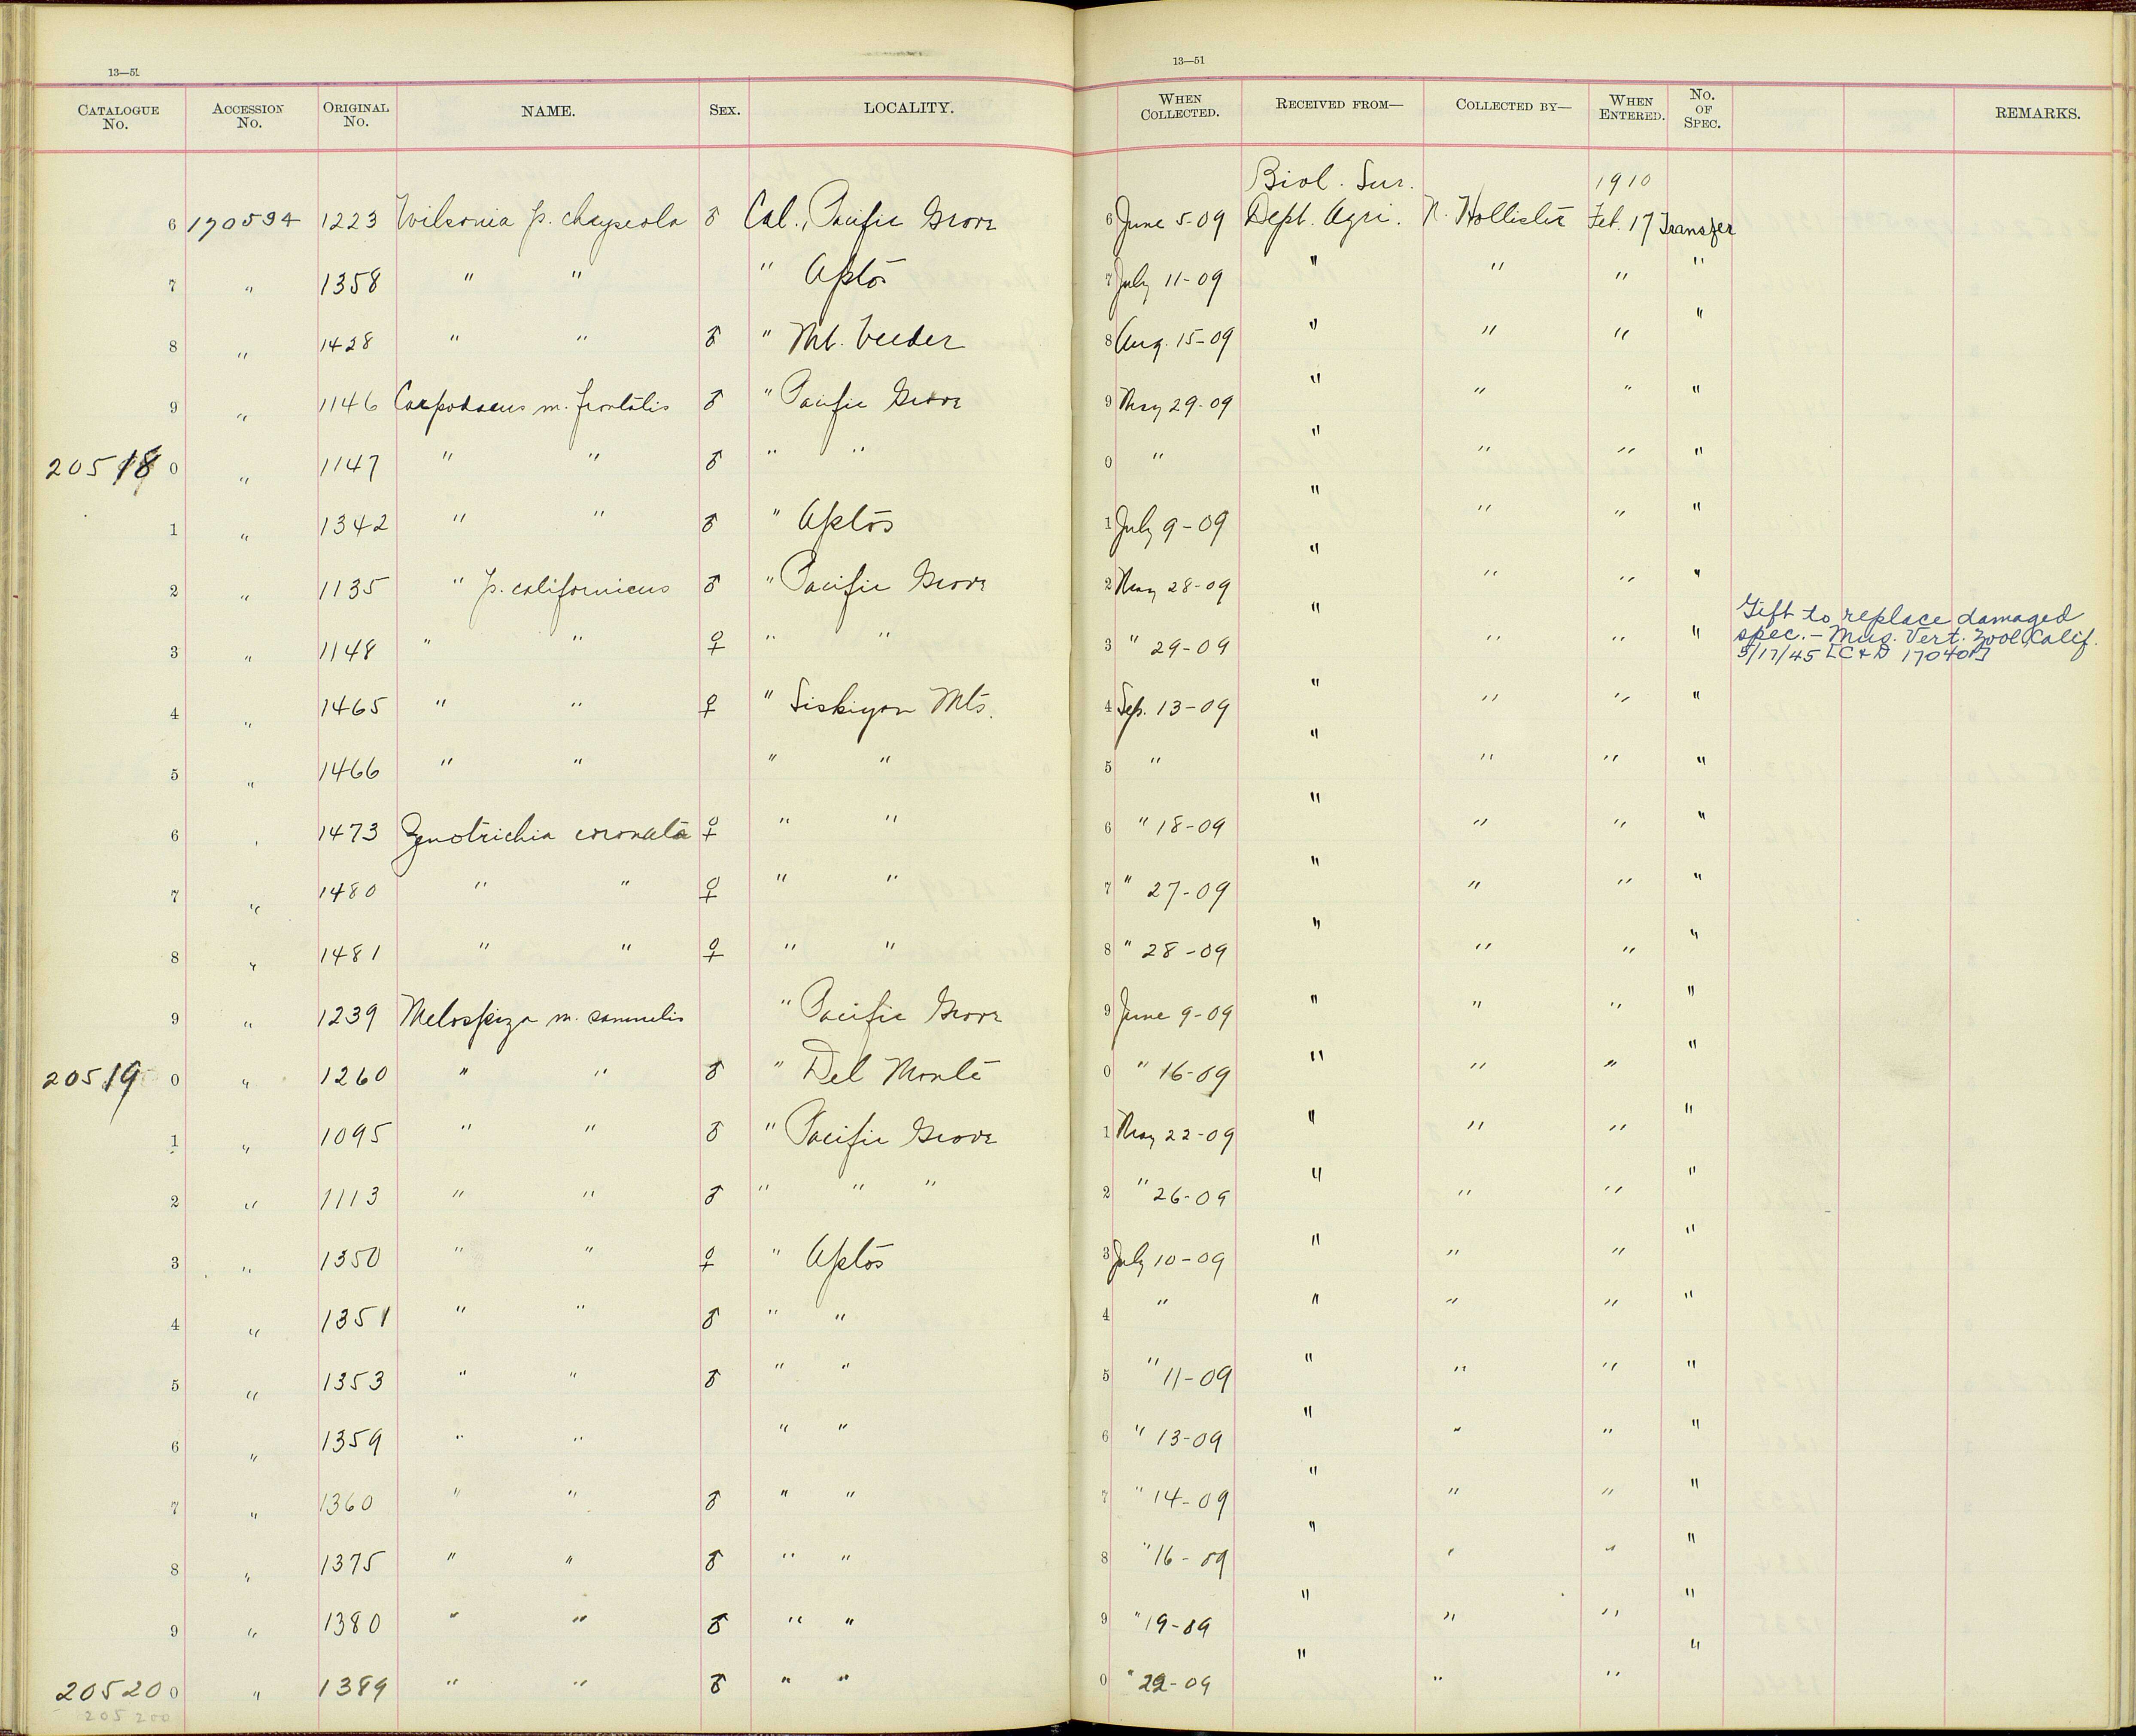 13—51
13—51
CATALOGUE No. ACCESSION No. ORIGINAL No. NAME. SEX. LOCALITY. WHEN COLLECTED. RECEIVED FROM— COLLECTED BY— WHEN ENTERED. No. OF SPEC. REMARKS.
Biol. Sur. 1910
6 170594 1223 Wilsonia p. chryseola ♂ Cal., Pacific Grove 6 June 5-09 Dept. Agri. N. Hollister Feb. 17 Transfer
7 " 1358 " " " Aptos 7 July 11-09 " " " "
8 " 1428 " " ♂ " Mt. Veeder 8 Aug. 15-09 " " " "
9 " 1146 Carpodacus m. frontalis ♂ " Pacific Grove 9 May 29-09 " " " "
20518 0 " 1147 " " ♂ " " 0 " " " " "
1 " 1342 " " ♂ " Aptos 1 July 9-09 " " " "
2 " 1135 " p. californicus ♂ " Pacific Grove 2 May 28-09 " " " "
3 " 1148 " " ♀ " " 3 " 29-09 " " " " Gift to replace damaged
spec. - Mus. Vert. Zool. Calif.
5/17/45 [C&D 17040]
4 " 1465 " " ♀ " Siskiyou Mts. 4 Sep. 13-09 " " " "
5 " 1466 " " " " 5 " " " " "
6 " 1473 Zonotrichia coronata ♀ " " 6 " 18-09 " " " "
7 " 1480 " " ♀ " " 7 " 27-09 " " " "
8 " 1481 " " ♀ " " 8 " 28-09 " " " "
9 " 1239 Melospiza m. samuelis " Pacific Grove 9 June 9-09 " " " "
20519 0 " 1260 " " ♂ " Del Monte 0 " 16-09 " " " "
1 " 1095 " " ♂ " Pacific Grove 1 May 22-09 " " " "
2 " 1113 " " ♂ " " " 2 " 26-09 " " " "
3 " 1350 " " ♀ " Aptos 3 July 10-09 " " " "
4 " 1351 " " ♂ " " 4 " " " " "
5 " 1353 " " ♂ " " 5 " 11-09 " " " "
6 " 1359 " " " " 6 " 13-09 " " " "
7 " 1360 " " ♂ " " 7 " 14-09 " " " "
8 " 1375 " " ♂ " " 8 " 16-09 " " " "
9 " 1380 " " ♂ " " 9 " 19-09 " " " "
20520 0 " 1389 " " ♂ " " 0 " 22-09 " " " "
205200